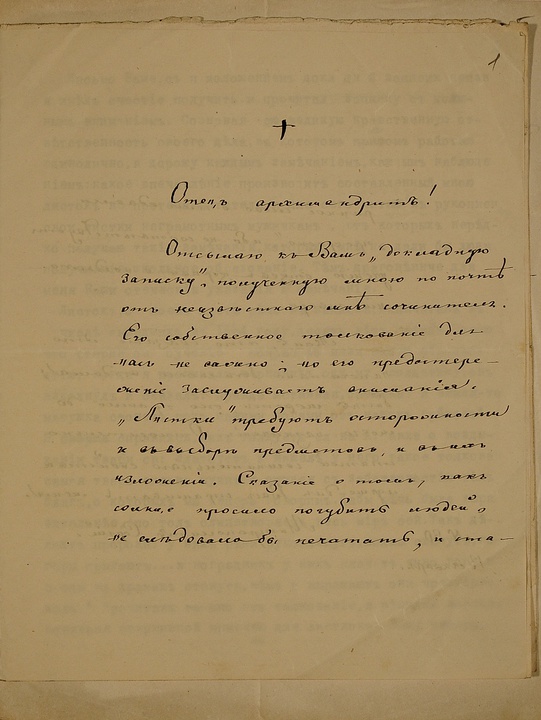 1
Отецъ архимандритъ!
Отсылаю къ Вамъ „докладную
записку", полученную мною по почтѣ
отъ неизвѣстнаго мнѣ сочинителя.
Его собственное толкованіе для
насъ не важно; но его предостере-
женіе заслуживаетъ вниманія.
„Листки" требуютъ осторожности
и въ выборѣ предметовъ, и въ ихъ
изложеніи. Сказаніе о томъ, какъ
солнце просило погубить людей,
не слѣдовало бы печатать, и ста-